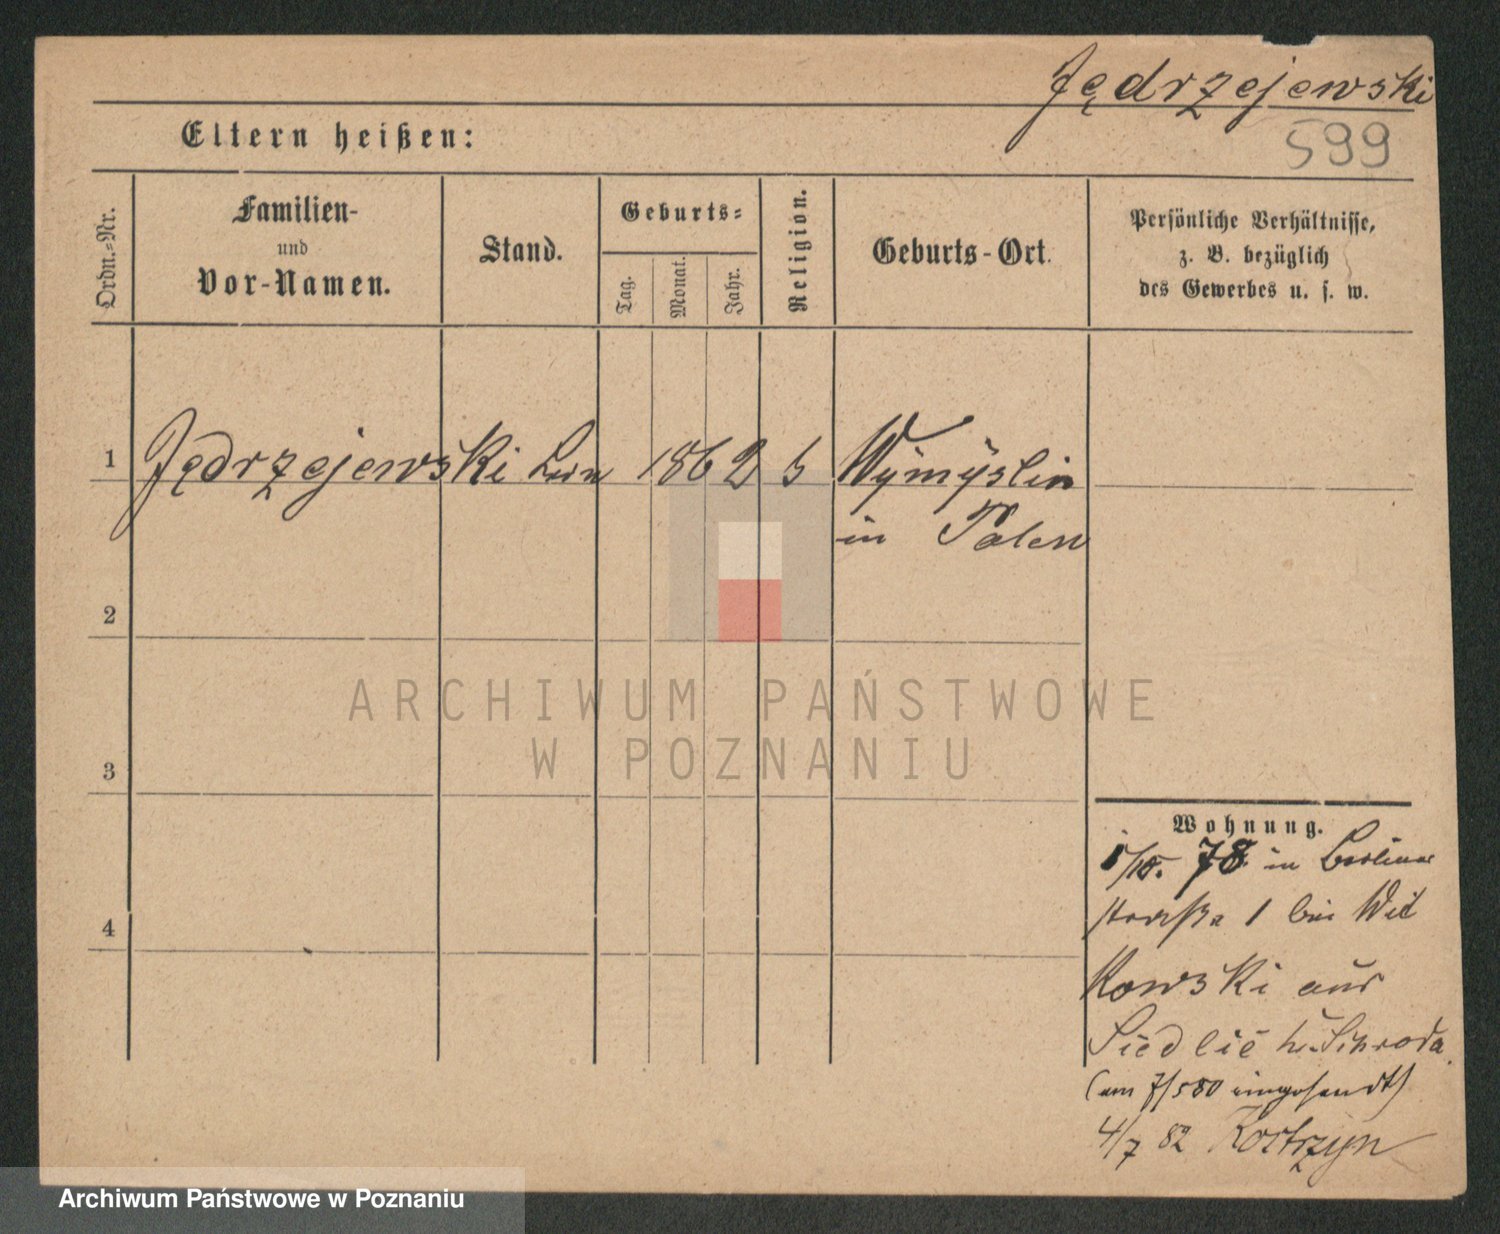 Jędrzejewski
599
Eltern heißen:
Ordn.=Nr.
Familien-
und
Vor-Namen.
Stand.
Geburts=
Tag.
Monat.
Jahr.
Religion.
Geburts-Ort.
Persönliche Verhältnisse,
z. B. bezüglich
des Gewerbes u. s. w.
1 Jędrzejewski 1862 Wymyslin
in Polen
2
3
4
ARCHIWUM PAŃSTWOWE
W POZNANIU
Wohnung.
78 in Berliner
straße 1 bei Wit
kowski aus
Siedlec Schroda
(am 7/5 80 eingesandt)
4/7 82 Kostrzyn
Archiwum Państwowe w Poznaniu